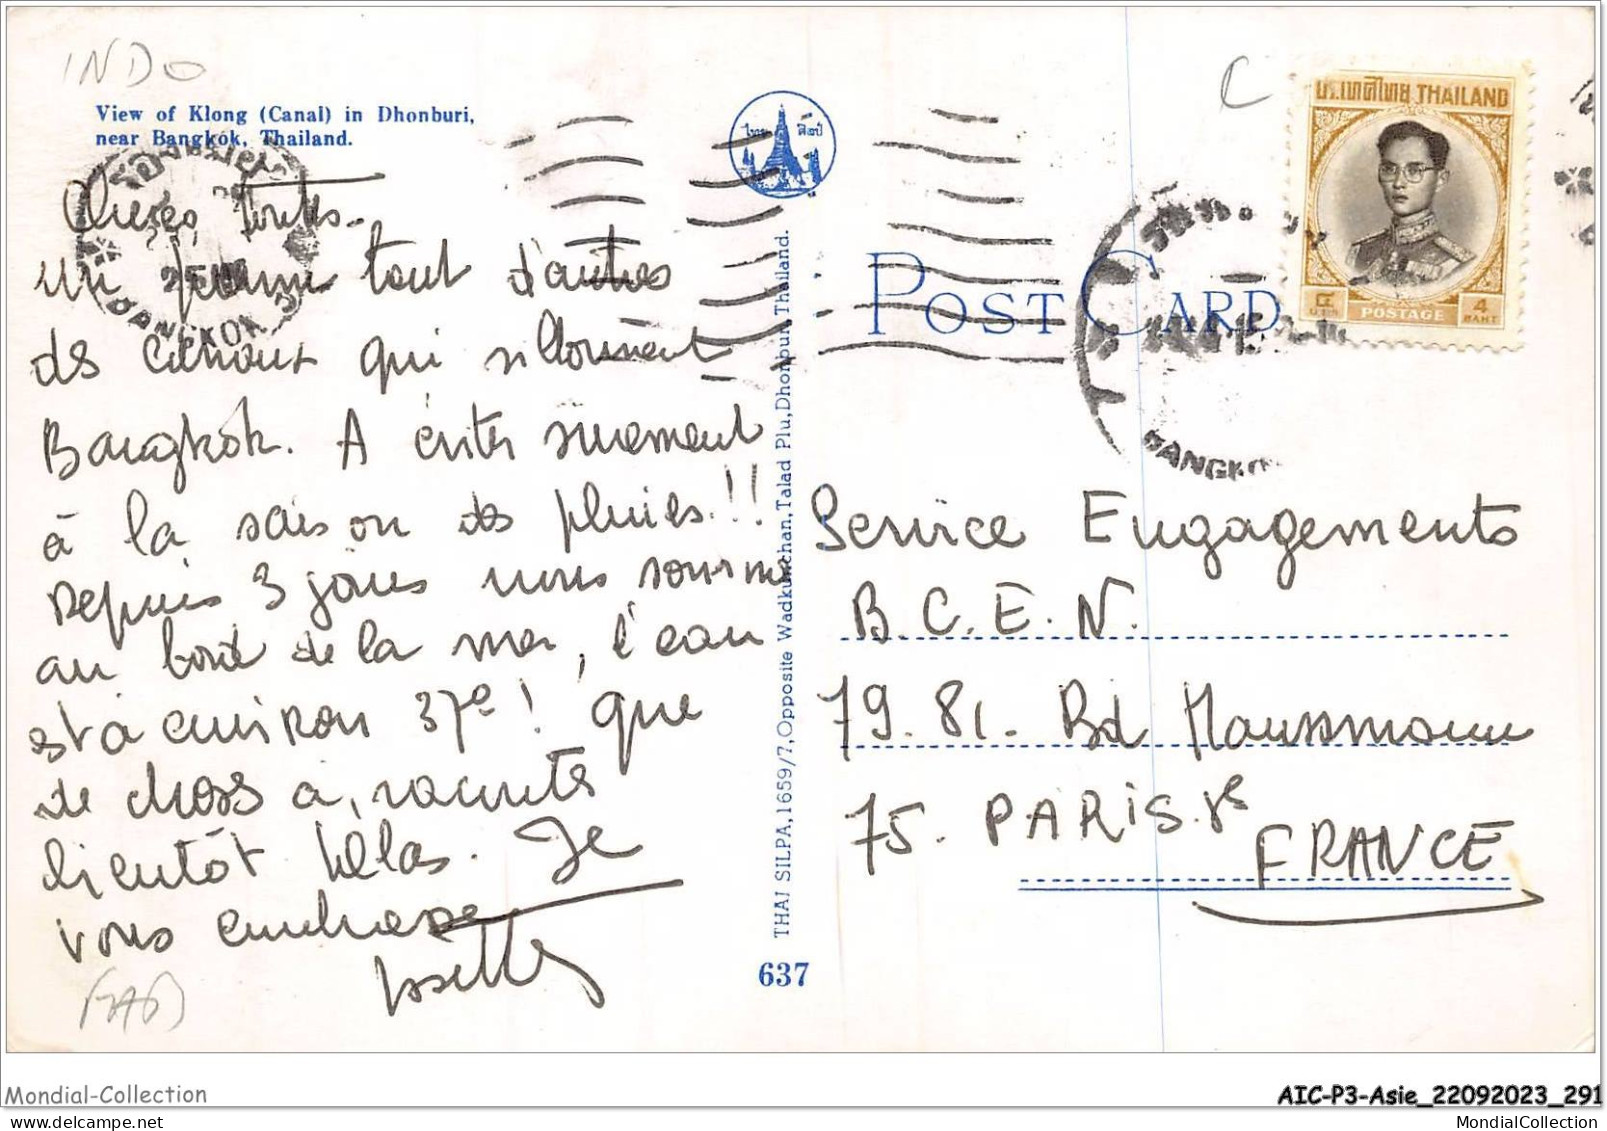 INDO
C
View of Klong (Canal) in Dhonburi,
near Bangkok, Thailand.
ไทย ศิลป์
ประเทศไทย THAILAND
๔ บาท
POSTAGE
4 BAHT
BANGKOK 3
BANGKO
POST CARD
Chères toutes.
un parmi tant d'autres
des canaux qui sillonnent
Bangkok. A éviter sûrement
à la saison des pluies!!
Depuis 3 jours nous sommes
au bord de la mer, l'eau
est à environ 37°! que
de choses à raconter
bientôt hélas. Je
vous embrasse
Josette
THAI SILPA, 1659/7, Opposite Wadkunchan, Talad Plu, Dhonburi, Thailand.
637
Service Engagements
B.C.E.N.
79.81. Bd Haussmann
75. PARIS. 8e
FRANCE
Mondial-Collection
AIC-P3-Asie_22092023_291
MondialCollection